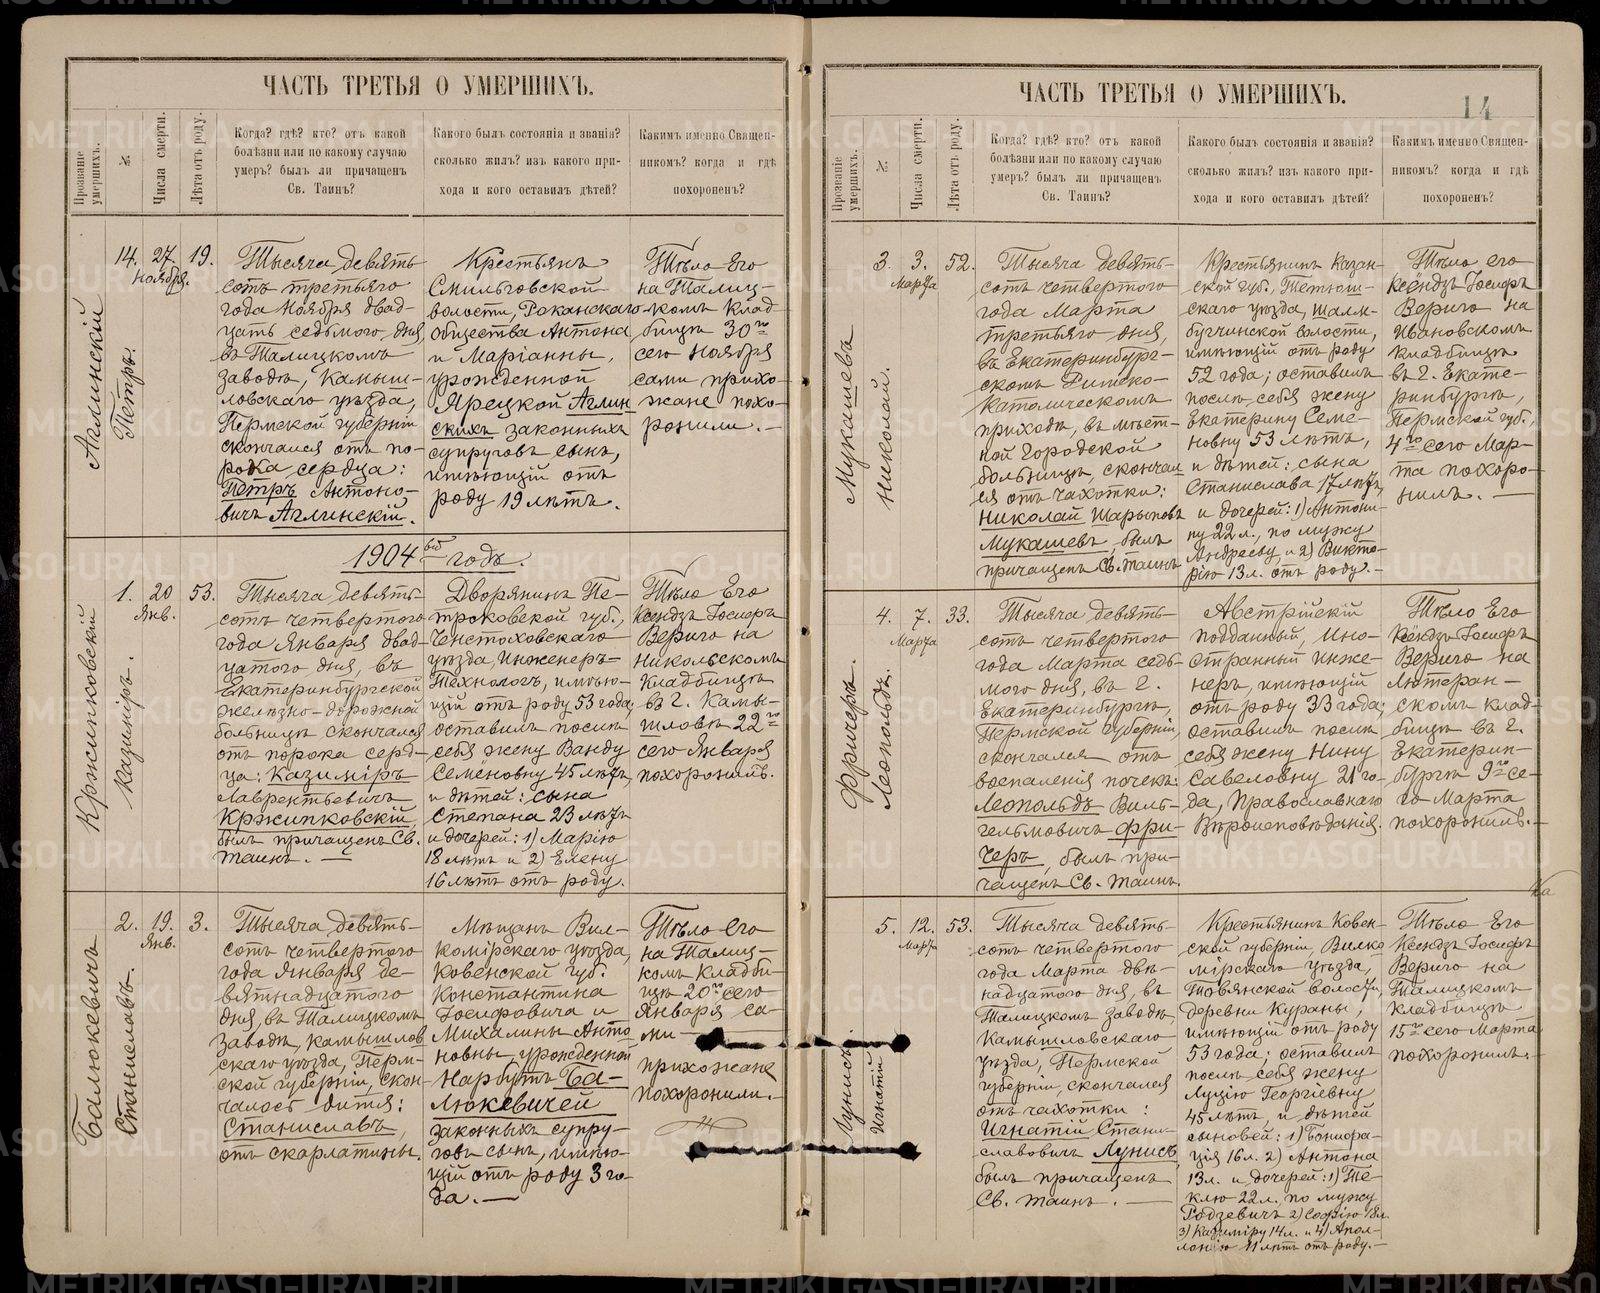 ЧАСТЬ ТРЕТЬЯ О УМЕРШИХЪ.
Прозваніе умершихъ.
№
Числа смерти.
Лѣта отъ роду.
Когда? гдѣ? кто? отъ какой
болѣзни или по какому случаю
умеръ? былъ ли причащенъ
Св. Таинъ?
Какого былъ состоянія и званія?
сколько жилъ? изъ какого при-
хода и кого оставилъ дѣтей?
Какимъ именно Священ-
никомъ? когда и гдѣ
похороненъ?
Аглинскій
Петръ.
14.
27.
ноября.
19.
Тысяча девять
сотъ третьяго
года Ноября двад-
цать седьмого дня,
въ Талицкомъ
заводѣ, Камыш-
ловскаго уѣзда,
Пермской губерніи
скончался отъ по-
рока сердца:
Петръ Антоно-
вичъ Аглинскій.
Крестьянъ
Смильговской
волости, Роканскаго
общества Антона
и Маріанны,
урожденной
Ярецкой Аглин
скихъ законныхъ
супруговъ сынъ,
имѣющій отъ
роду 19 лѣтъ.
Тѣло Его
на Талиц-
комъ клад
бищѣ 30го
сего Ноября
сами прихо-
жане похо-
ронили.-
1904ый годъ.
Кржипковскій
Казиміръ.
1.
20
Янв.
53.
Тысяча девять-
сотъ четвертого
года Января двад-
цатого дня, въ
Екатеринбургской
желѣзно-дорожной
больницѣ скончался
отъ порока серд-
ца: Казиміръ
Лаврентьевичъ
Кржипковскій,
былъ причащенъ Св.
Таинъ.-
Дворянинъ Пе-
троковской губ.,
Ченстоховскаго
уѣзда, Инженеръ-
Технологъ, имѣю-
щій отъ роду 53 года;
оставилъ послѣ
себя жену Ванду
Семёновну 45 лѣтъ,
и дѣтей: сына
Степана 23 лѣтъ
и дочерей: 1) Марію
18 лѣтъ и 2) Елену
16 лѣтъ отъ роду.
Тѣло Его
Ксендзъ Іосифъ
Вериго на
Никольскомъ
кладбищѣ
въ г. Камы-
шловѣ 22го
сего Января
похоронилъ.
Балюкевичъ
Станиславъ.
2.
19.
Янв.
3.
Тысяча девять-
сотъ четвертого
года Января де-
вятнадцатого
дня, въ Талицкомъ
заводѣ, Камышлов
скаго уѣзда, Перм-
ской губерніи, скон-
чалось дитя:
Станиславъ,
отъ скарлатины.
Мѣщанъ Вил-
комірскаго уѣзда,
Ковенской губ.
Константина
Іосифовича и
Михалины Анто
новны, урожденной
Нарбутъ Ба-
люкевичей
законныхъ супру-
говъ сынъ, имѣю-
щій отъ роду 3 го-
да.-
Тѣло его
на Талиц-
комъ кладби-
щѣ 20го сего
Января са-
ми-
прихожане
похоронили.-
ЧАСТЬ ТРЕТЬЯ О УМЕРШИХЪ.
14
Прозваніе умершихъ.
№
Числа смерти.
Лѣта отъ роду.
Когда? гдѣ? кто? отъ какой
болѣзни или по какому случаю
умеръ? былъ ли причащенъ
Св. Таинъ?
Какого былъ состоянія и званія?
сколько жилъ? изъ какого при-
хода и кого оставилъ дѣтей?
Какимъ именно Священ-
никомъ? когда и гдѣ
похороненъ?
Мукашевъ
Николай.
3.
3.
Марта
52.
Тысяча девять-
сотъ четвертого
года Марта
третьяго дня,
въ Екатеринбург-
скомъ Римско-
католическомъ
приходѣ, въ мѣст-
ной Городской
больницѣ, скончал
ся отъ чахотки:
Николай Шарыповъ
Мукашевъ, былъ
причащенъ Св. Таинъ
Крестьянинъ Казан-
ской губ., Тетюш-
скаго уѣзда, Шалм-
бугчинской волости,
имѣющій отъ роду
52 года; оставилъ
послѣ себя жену
Екатерину Семе-
новну 53 лѣтъ,
и дѣтей: сына
Станислава 17 лѣтъ,
и дочерей: 1) Антони-
ну 22 л., по мужу
Андрееву и 2) Викто-
рію 13 л. отъ роду.-
Тѣло его
Ксендзъ Іосифъ
Вериго на
Ивановскомъ
кладбищѣ
въ г. Екате-
ринбургѣ,
Пермской губ.,
4го сего Мар-
та похоро-
нилъ.-
Фричеръ.
Леопольдъ.
4.
7.
Марта
33.
Тысяча девять-
сотъ четвертого
года Марта седь-
мого дня, въ г.
Екатеринбургѣ,
Пермской губерніи,
скончался отъ
воспаленія почекъ:
Леопольдъ Виль-
гельмовичъ Фри-
черъ, былъ при-
чащенъ Св. Таинъ.
Австрійскій
подданный, Ино-
странный инже-
неръ, имѣющій
отъ роду 33 года;
оставилъ послѣ
себя жену Нину
Савеловну 21 го-
да, Православнаго
Вѣроисповѣданія.
Тѣло Его
Ксёндзъ Іосифъ
Вериго на
Лютеран-
скомъ клад-
бищѣ въ г.
Екатерин-
бургѣ 9го се-
го Марта
похоронилъ.-
Лунисъ
Игнатій
5.
12.
Марта
53.
Тысяча девять-
сотъ четвертого
года Марта двѣ-
надцатого дня, въ
Талицкомъ заводѣ,
Камышловскаго
уѣзда, Пермской
губерніи, скончался
отъ чахотки:
Игнатій Стани-
славовичъ Лунисъ,
былъ причащенъ
Св. Таинъ.-
Крестьянинъ Ковен-
ской губерніи, Вилко
мірскаго уѣзда,
Товянской волости,
деревни Кураны,
имѣющій отъ роду
53 года; оставилъ
послѣ себя жену
Луцію Георгіевну
45 лѣтъ, и дѣтей
сыновей: 1) Бонифа-
ція 16 л. 2) Антона
13 л. и дочерей: 1) Те-
клю 22 л. по мужу
Родзевичъ 2) Софію 18 л.
3) Казиміру 14 л. и 4) Апол-
лонію 11 лѣтъ отъ роду.-
Тѣло Его
Ксендзъ Іосифъ
Вериго на
Талицкомъ
кладбищѣ
15го сего Марта
похоронилъ.-
METRIKI.GASO-URAL.RU